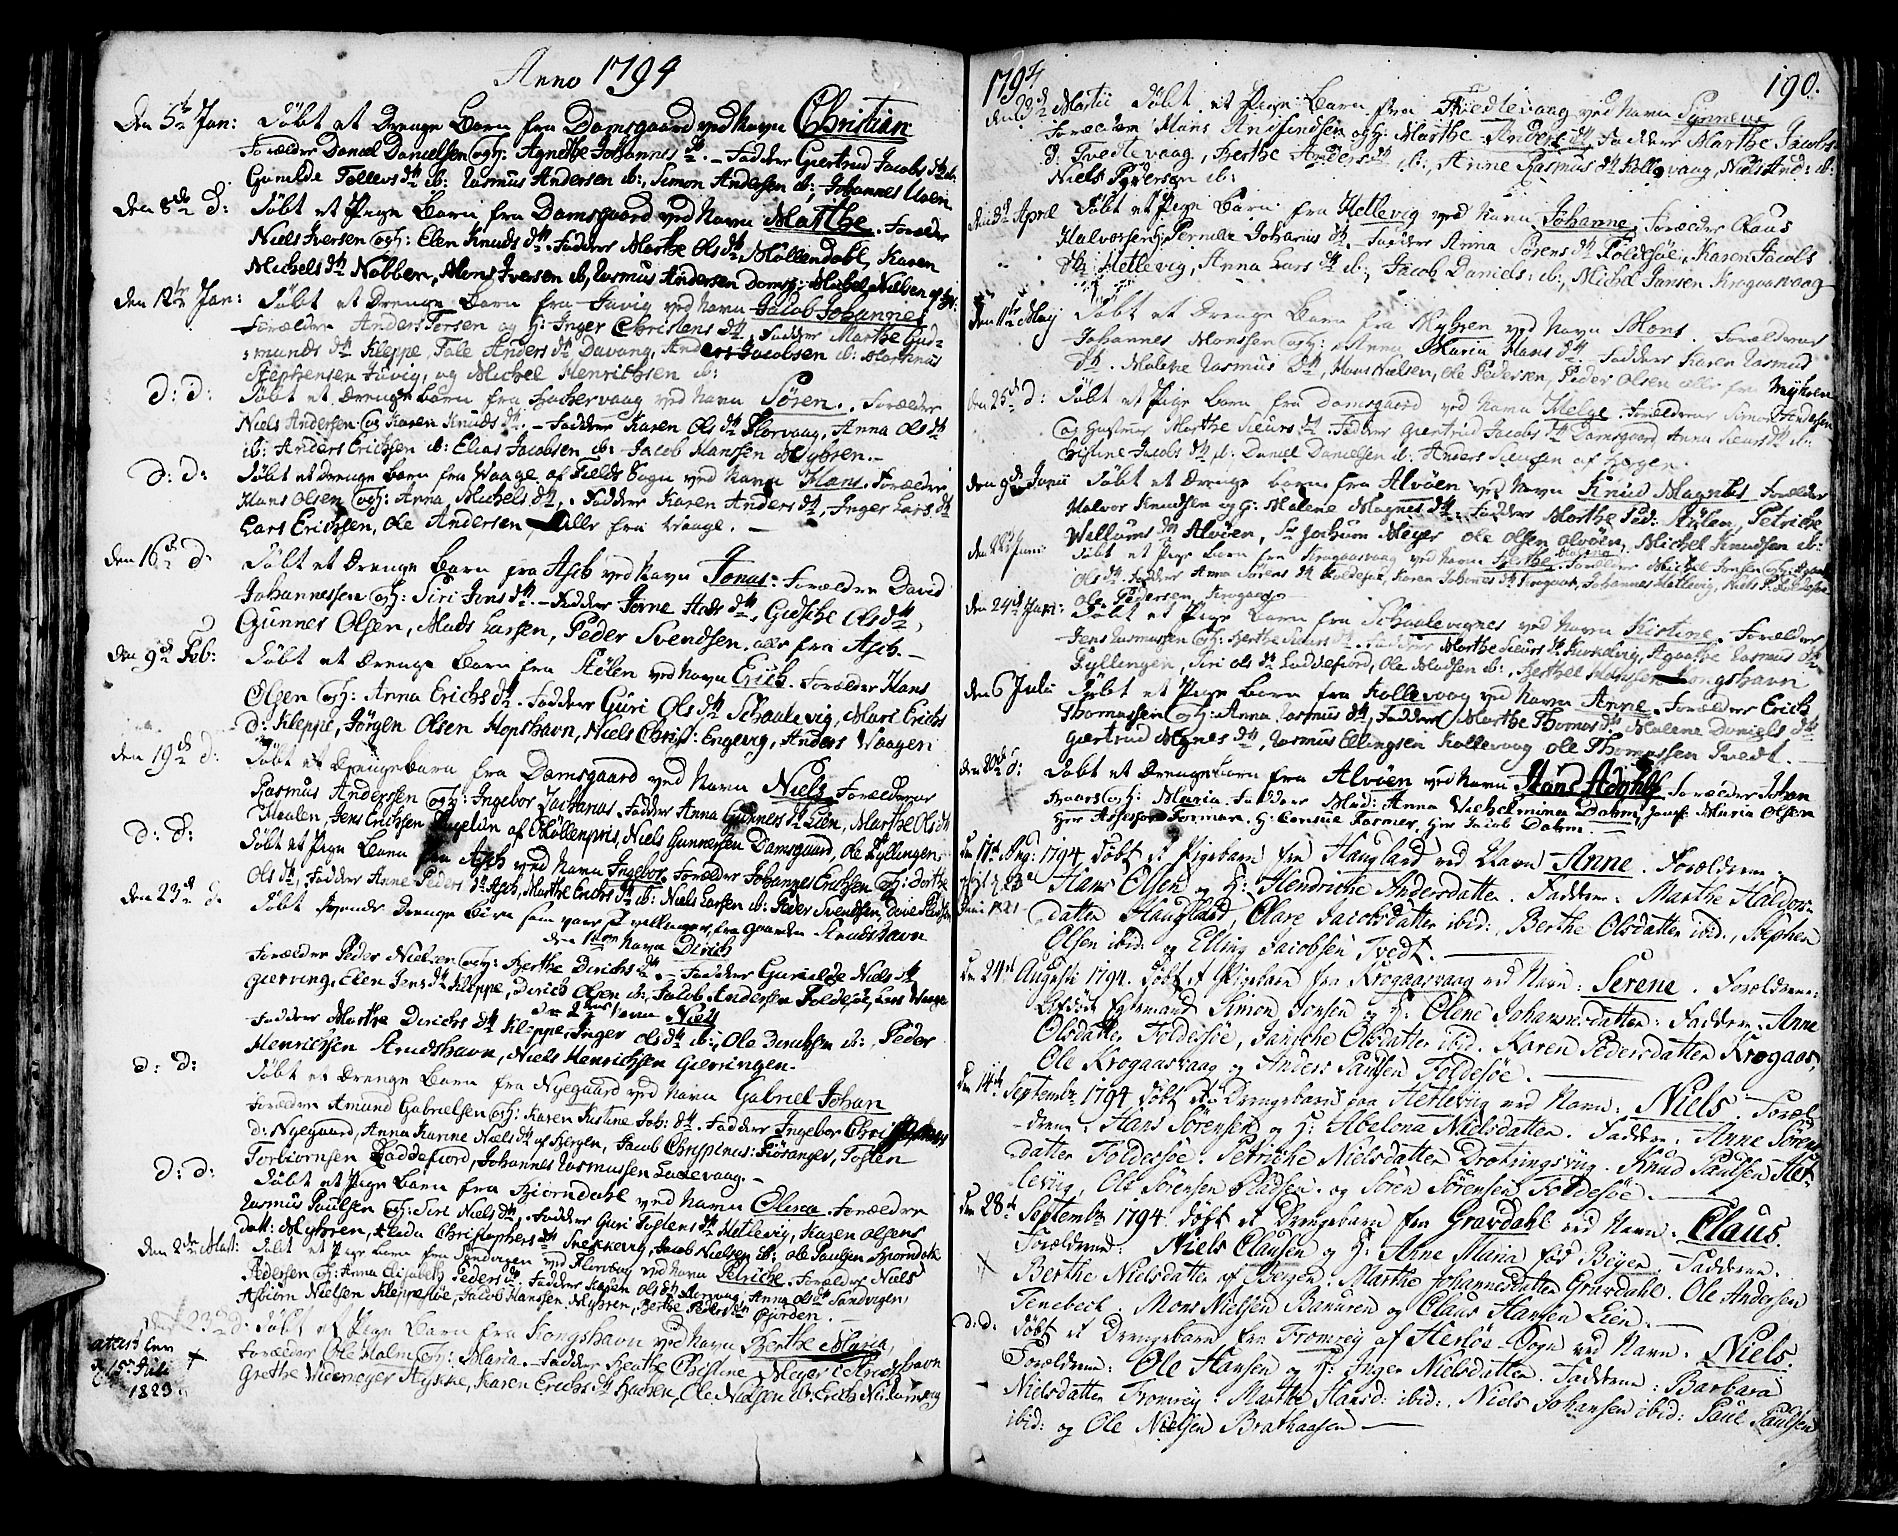 Anno 1794
Den 5te Jan: Døbt et Drenge Barn fra Damsgaard ved Navn Christian
Forældre Daniel Danielsen og H: Agnethe Johannes dtr. Faddere Giertrud Jacobs dtr ib:
Gunilde Tollevs dtr ib: Rasmus Andersen ib:, Simon Andersen ib: Johannes
den 8de d: Døbt et Pige Barn fra Damsgaard ved Navn Marthe. Forældre
Niels Iversen og H: Elen Knuds dtr. Faddere Marthe Ols dtr Møllendahl, Karen
Michels dtr Nobben, Mons Iversen ib, Rasmus Andersen Damsg: Michel Nielsen
den 12te Jan: Døbt et Drenge Barn fra Juvig ved Navn Jacob Johannes
Forældre Anders Torsen og H: Inger Christens dtr, Faddere Marthe Gud-
munds dtr Kleppe, Tale Anders dtr Davang, Anders Jacobsen ib: Martinus
Stephensen Juvig, og Michel Henrichsen ib:
d: d: Døbt et Drenge barn fra ved Navn Søren. Forældre
Niels Andersen og Karen Knuds dtr. Faddere Karen Ols dtr Storvaag, Anna Ols dtr
ib: Anders Erichsen ib: Elias Jacobsen ib: Jacob Hanssen Myhren.
d: d: Døbt et Drenge barn fra Vaage af Fields Sogn ved Navn Hans. Forældre
Hans Olsen og H: Anna Michels dtr, Faddere Karen Anders dtr, Inger Lars dtr
Lars Erichsen, Ole Andersen, alle fra Vaage.
den 16de d: Døbt et Drenge Barn fra Ask ved Navn Jonas. Forældre David
Johannessen og H: Siri Jens dtr. Faddere Ols dtr,
Gunner Olsen, Mads Larsen, Peder Svendsen, alle fra Ask.
den 9de Feb: Døbt et Drenge Barn fra Stølen ved Navn Erich. Forældre Hans
Olsen og H: Anna Erichs dtr. Faddere Guri Ols dtr Schaalevig, Mari Erichs
d: Kleppe, Jørgen Olsen Hopshavn, Niels Christ: Engevig, Anders Vaagen
den 19de d: Døbt et Drengebarn fra Damsgaard ved Navn Niels. Forældrene
Rasmus Andersen og H: Ingebor Zacharias. Faddere Anna Gunners dtr Lien, Marthe Ols dtr
Melen, Jens Erichsen af Møllenpris, Niels Gunnersen Damsgaard, Ole Fyllingen
d: d: Døbt et Pige Barn fra Ask ved Navn Ingebor. Forældre Johannes Erichsen og H: Dorthe
Ols dtr, Faddere Anne Peders dtr Ask, Marthe Erichs dtr ib: Niels Larsen ib: Peder Svendsen,
den 23de d: Døbt tvende Drenge Børn som vare tvillinger, fra gaarden Strudshavn
den 1ste Navn Dirich
Forældre Peder Nielsen og H: Berthe Dirichs dtr. Faddere Gunilde Niels dtr
Gierving, Elen Jens dtr Kleppe, Dirich Olsen ib:, Jacob Andersen Foldesøe, Lars Vaage
den 2den Navn Niels
Faddere Marthe Dirichs dtr Kleppe, Inger Ols dtr ib:, Ole ib:, Peder
Henrichsen Strudshavn, Niels Henrichsen Giervingen.
d: d: Døbt et Drenge Barn fra Nyegaard ved Navn Gabriel Johan
Forældre Amund Gabrielsen og H: Karen Kistine Joh: dtr. Faddere Ingebor
d: Nyegaard, Anna Karine Niels dtr af Bergen, Jacob Chrispinus: Fiøsanger, Tosten
Torbiørnsen Laddefiord, Johannes Rasmussen Ladevaag.
d: d: Døbt et Pige Barn fra Biørndahl ved Navn Olina Forældre
Rasmus Paulsen og H: Siri Niels dtr, Faddere Guri Tostens dtr Hetlevig, Karen Olsens
datt: Myhren, Christophers dtr Snekkevig, Jacob Nielsen ib: Ole Paulsen Biørndahl
den 2den Mart: Døbt et Pige barn fra Sandvigen ved Navn Petriche. Forældre Niels
Pedersen og H: Anna Elisabeth Peders dtr. Faddere Karen Ols dtr Storvaag, Anna Ols dtr Sandvigen,
Asbiørn Nielsen Kleppesøe, Jacob Hanssen Myhren, Berthe Peders dtr Giørden.
den 23de d: Døbt et Pige Barn fra Kongshavn ved Navn Berthe Maria,
Forældre Ole Holm og H: Maria. Faddere Berthe Christine Meyer
Grethe Widemeyer Stykke, Karen Erichs dtr, Ole Madsen ib: Erich
15de Juli
1823
1794 190.
den 23de Martii Døbt et Pige Barn fra Tvedtevaag ved Navn Synneve
Forældre Hans Amundsen og H: Marthe Anders dtr Faddere Marthe Jacobs
d: Tvedtevaag, Berthe Anders dtr ib:, Anne Rasmus dtr Kollevaag, Niels And: ib:
Niels Pedersen ib:
den April Døbt et Pige Barn fra Hetlevig ved Navn Johanne. Forældre Claus
Halvorsen H: Pernille Johanus dtr. Faddere Anna Sørens dtr Foldesøe, Karen Jacobs
dtr Hetlevig, Anna Lars dtr ib:, Jacob Daniels: ib:, Michel Jansen Krogaasvaag
den 11te May Døbt et Drenge Barn fra Myhren ved Navn Mons. Forældrene
Johannes Monssen og H: Anna Maria Hans dtr. Faddere Karen Rasmus
dtr. Malene Rasmus dtr, Hans Nielsen, Ole Pedersen, Peder Olsen alle fra Myhren
den 25de d: Døbt et Pige Barn fra Damsgaard ved Navn Helge. Forældrene Simon Andersen
og Hustrue Marthe Siurs dtr. Faddere Giertrud Jacobs dtr Damsgaard, Anna Siurs dtr ib:
Christine Jacobs dtr ib: Daniel Danielsen ib: Anders Siursen af Bergen.
den 9de Junii Døbt et Drenge barn fra Alvøen ved Navn Knud Magnus Forældre
Halvor Knudsen og H: Malene Magnes dtr. Faddere Marthe Ped: Stølen, Petriche
Willums dtr Alvøen, Sr Jochum Meyer Ole Olsen Alvøen, Michel Knudsen ib:
den 22de Juni: Døbt et Pige Barn fra Krogaasvaag ved Navn Berthe Forældre Michel Jensen og H:
Ols dtr. Faddere Anna Sørens dtr Foldesøe, Karen Johans dtr Krogaas, Johannes Hetlevig, Niels Foldesøe
Ole Pedersen, Krogaas
den 24de Juni: Døbt et Pige Barn fra Schaalevignes ved Navn Kistine. Forældre
Jens Rasmussen og H: Berthe Siurs dtr. Faddere Marthe Siurs dtr, Agathe Rasmus dtr
Fyllingen, Siri Ols dtr Laddefiord, Ole Madsen ib:, Berthel Hanssen Kongshavn
den 6 Julii Døbt et Pige Barn fra Kollevaag ved Navn Anne. Forældre Erich
Thomassen og H: Anna Rasmus dtr, Faddere Marthe Thomas dtr, Malene Daniels dtr
Giertrud Magnes dtr, Rasmus Ellingsen Kollevaag Ole Thomassen Tvedt.
den 20de d: Døbt et Drengebarn fra Alvøen ved Navn Hans Adolph Forældre Johan
og H: Maria. Faddere Mad: Anna Vilhelmina Dahm, Jomf: Maria Olsen
Herr Assessor Forman, H: Consul Farmer, Her Jacob Dahm.
den 17de Aug: 1794 døbt et Pigebarn fra Haugland ved Navn Anne. Forældrene
Hans Olsen og H: Hendriche Andersdatter. Faddere: Marthe Haldors-
datter Haugland, Clare Jacobsdatter ibid: Berthe Olsdatter ibid., Stephen
Olsen ibid: og Elling Jacobsen Tvedt.
den 24de Augusti 1794. døbt et Pigebarn fra Krogaasvaag ved Navn: Serene. Forældrene:
Simon Jonsen og H: Olene Johannesdatter: Faddere: Anne
Olsdatter Foldesøe, Janiche Olsdatter ibid. Karen Pedersdatter Krogaas,
Ole Krogaasvaag og Anders Paulsen Foldesøe.
den 14de Septembr 1794 døbt et Drengebarn fra Hetlevig ved Navn: Niels. Foræl-
drene: Hans Sørensen og H: Abelona Nielsdatter. Faddere: Anne Sørens
datter Foldesøe: Petriche Nielsdatter Drotningsvig. Knud Paulsen Het-
levig, Ole Sørensen Pladsen. og Søren Sørensen Foldesøe.
den 28de Septembr 1794. døbt et Drengebarn fra Gravdahl ved Navn: Claus.
Forældrene: Niels Clausen og H: Anne Maria fød Beyer. Faddere.
Berthe Nielsdatter af Bergen. Marthe Johannesdatter Gravdahl. Ole Andersen
Tenebech. Mons Nielsen Banuren og Claus Hansen Lien.
d: d: Døbt et Drengebarn fra Tromøy af Herløe Sogn ved Navn: Niels.
Forældrene: Ole Hansen og H: Inger Nielsdatter. Faddere: Barbara
Nielsdatter Tromøy. Marthe Hansd: ibid:. Niels Johansen ibid: Paul Paulsen
ibid: og Ole Nielsen Brathaasen